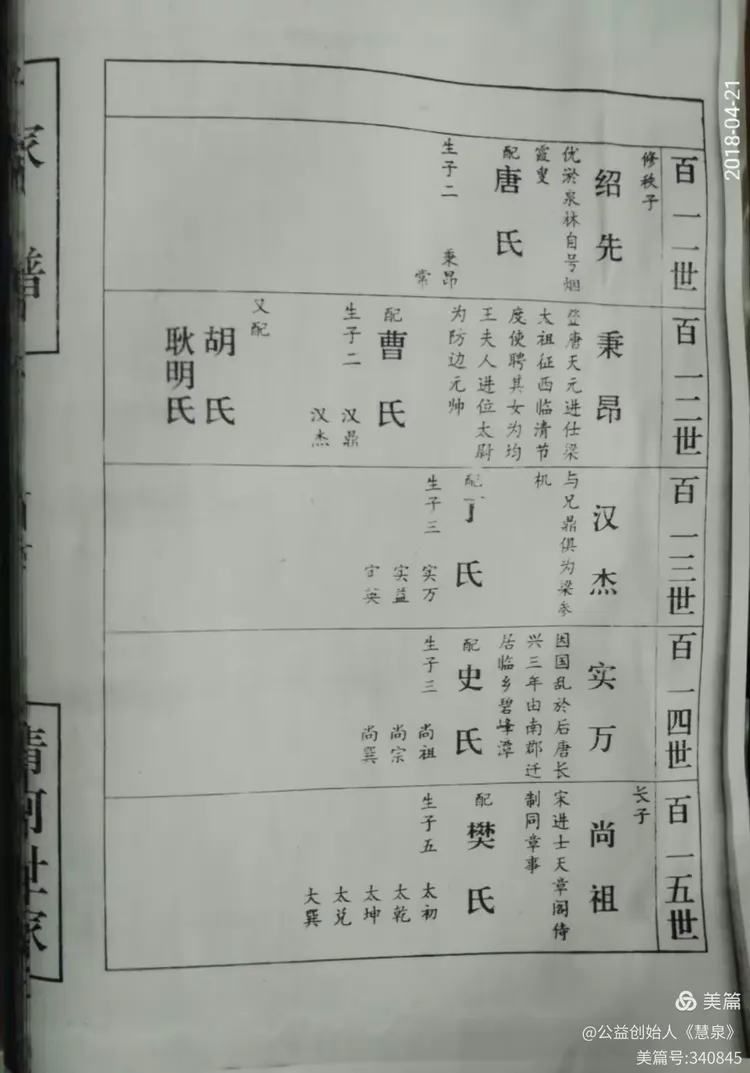 百一一世
修秩子
绍先
优淤泉林自号烟
霞叟
配
唐氏
生子二
秉昂
常
百一二世
秉昂
登唐天元进仕梁
大祖征西临清节
度使聘其女为均
王夫人进位太尉
为防边元帅
配
曹氏
生子二
汉鼎
汉杰
又配
胡氏
耿明氏
百一三世
汉杰
与兄鼎俱为梁参
机
配
丁氏
生子三
实万
实益
百一四世
实万
因国乱於后唐长
兴三年由南郡迁
居临乡碧峰潭
配
史氏
生子三
尚祖
尚宗
尚巽
百一五世
长子
尚祖
宋进士天章阁侍
制同章事
配
樊氏
生子五
太初
太乾
太坤
太兑
大巽
家谱
清河世家
2018-04-21
美篇
@公益创始人《慧泉》
美篇号:340845